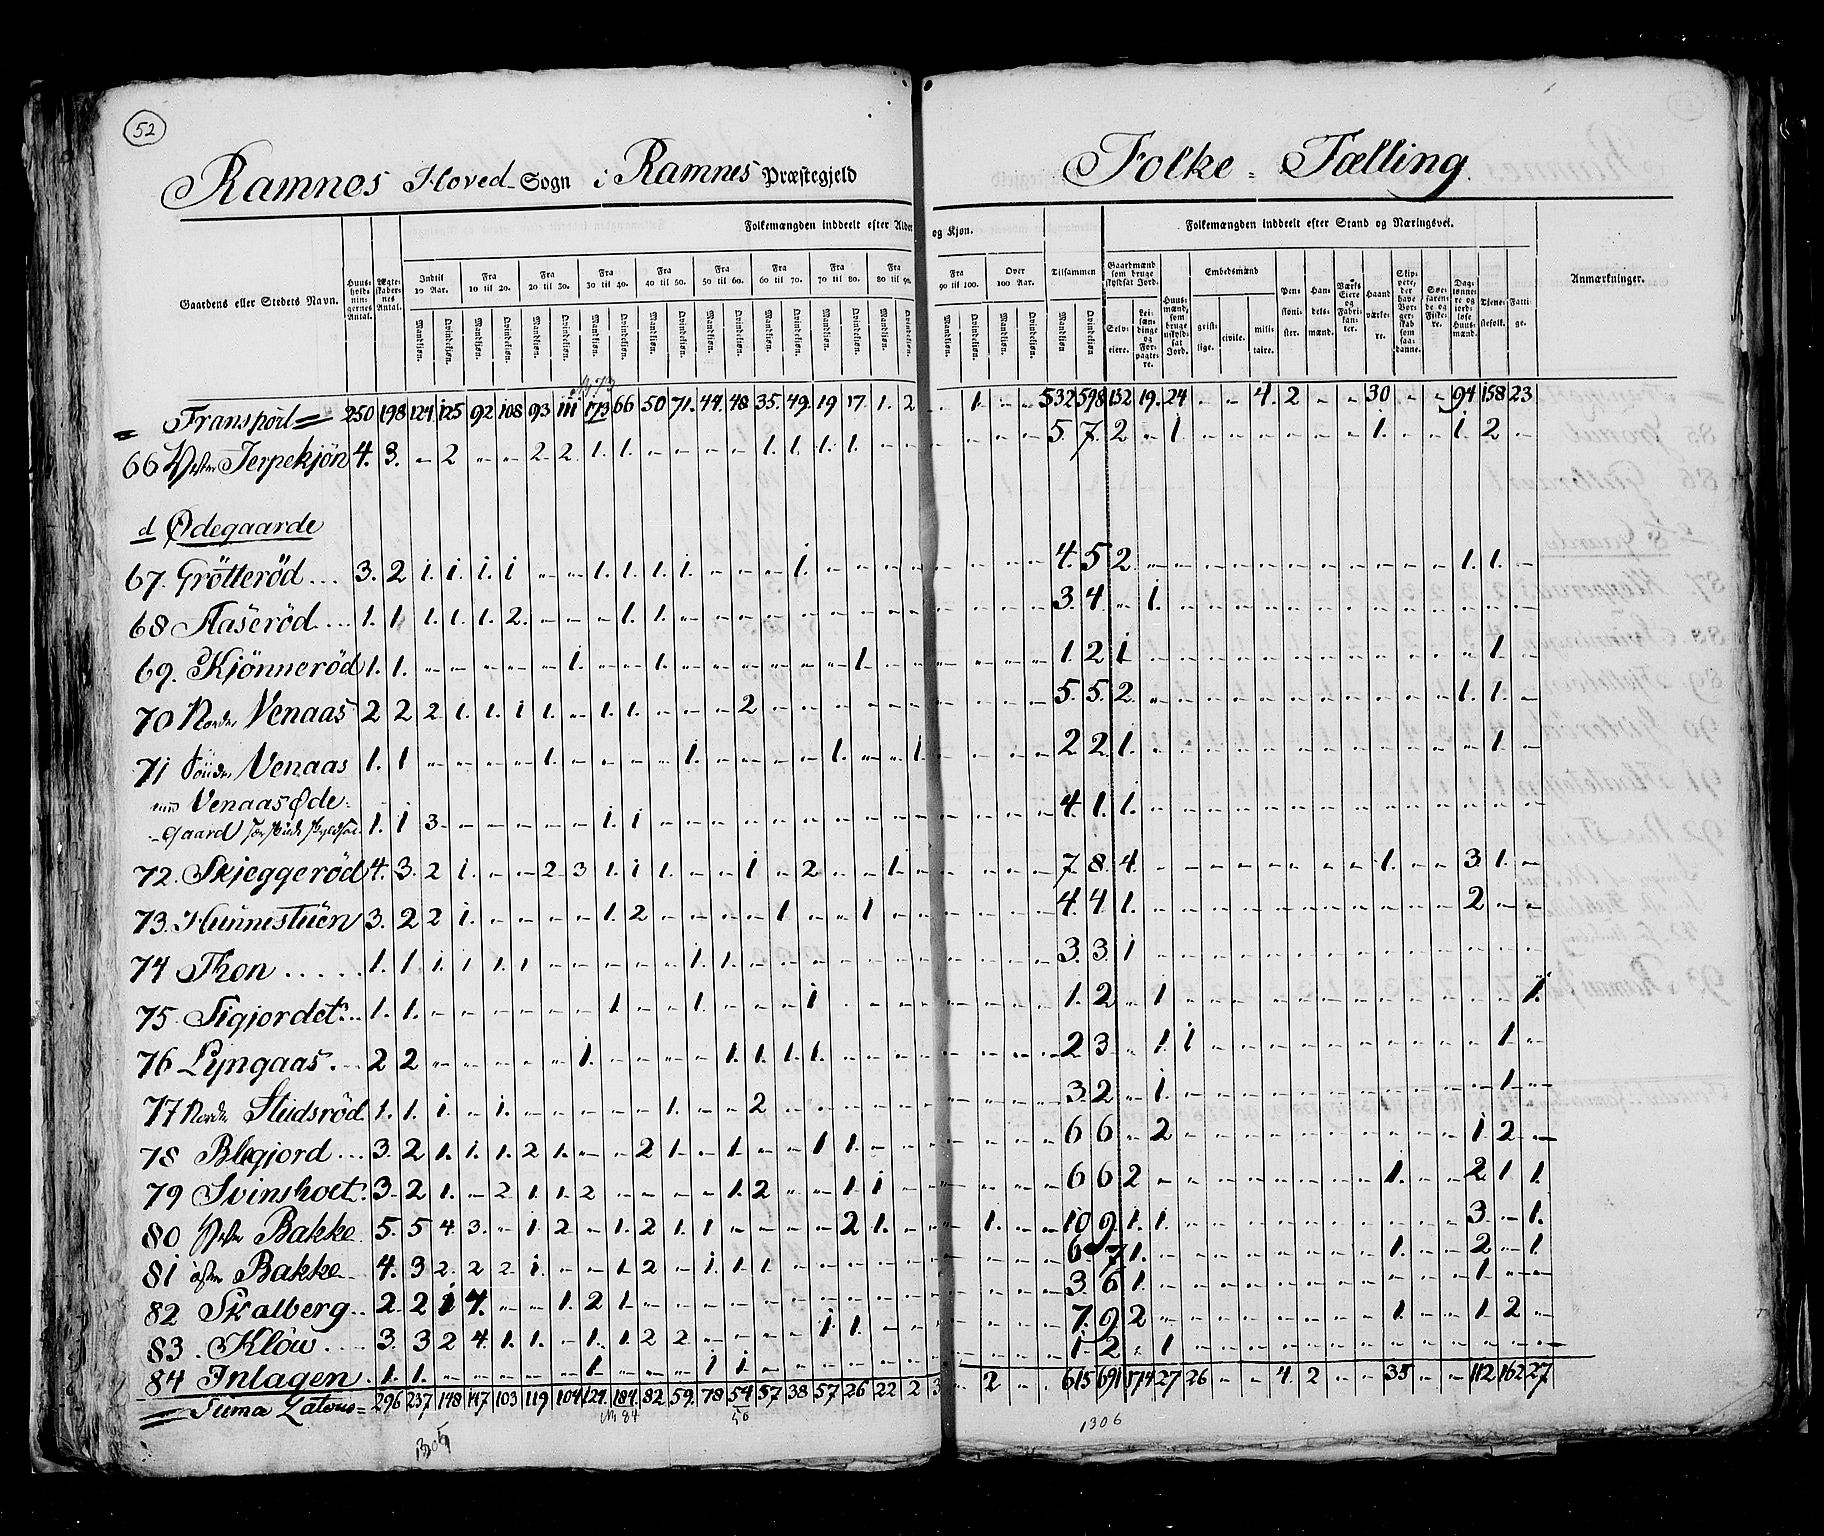 52
Ramnes Hoved-Sogn i Ramnes Præstegjeld
Folke-Tælling.
Folkemængden inddeelt efter Alder og Kjøn.
Folkemængden inddeelt efter Stand og Næringsvei.
Gaardens eller Stedets Navn.
Huus-holdningernes Antal.
Ægteskabernes Antal.
Indtil 10 Aar.
Fra 10 til 20.
Fra 20 til 30.
Fra 30 til 40.
Fra 40 til 50.
Fra 50 til 60.
Fra 60 til 70.
Fra 70 til 80.
Fra 80 til 90.
Fra 90 til 100.
Over 100 Aar.
Tilsammen
Mandkiøn. Qvindekiøn.
Gaardmænd som bruge skyldsat Jord.
Selveiere.
Huusmænd, som bruge uskyldsat Jord.
Embedsmænd
geistlige.
civile.
militaire.
Pensionister.
Handelsmænd.
Haandværkere.
Tjenestefolk.
Fattige.
Anmærkninger.
No 73
Transport = 250 198 124 125 92 108 93 111 173 66 50 71. 44. 48 35. 49. 19 17. 1. 2 - 1. - - 532 598 152 19. 24 - - 4. 2 - - 30 - - 94 158 23
66 Vester Jerpekjön 4. 3. - 2 - - 2 2. 1. 1. - - - - 1. 1. 1. 1. 5. 7. 2 - 1. 1. 1. 2 -
d Ødegaarde
67. Grötteröd... 3. 2 1. 1. 1. 1 - - 1. 1. 1. 1. - - - 1. 4. 5 2 1. 1. -
68 Aaseröd... 1. 1. 1. 1. 1. 2. - - - 1. 1. 3. 4 - 1.
69. Kjönneröd 1. 1. 1. 1. 1. 1. 2 1 1. -
70 Nordre Venaas 2 2 2 1. 1. 1 1. - 1. 1. - - - 2 5. 5. 2 1. 1. -
71 Söndre Venaas 1. 1 1. 1. 1. 1. 2 2. 1. 1. -
Venaas Øde-
Gaard 1. 1 3. 1. 1 4. 1. 1.
72. Skjeggeröd 4. 3. 2 1. - - 2 3 1. 1 1. - - 1 - 2 - - 1. 7 8. 4. 1. 3 1. -
73. Hunnestuen 3. 2 2 1. - - - - 1. 2 1 1 4. 4 1. 2 - -
74 Thon..... 1. 1 1. 1 1. 1 1. 1. 3. 3. 1
75. Sigjordet... 1. 1. 1 1. 1 1. 2 - 1 1.
76 Lyngaas... 2 2 1. 1. 1. 1. 1. 2 3 - 1. 1 1. -
77 Nordre Studsröd 1. 1. 1. - 1. 1. - - 2 3 2 - 1. 1. -
78 Blegjord... 3. 2 1. 1. 1. 2 1. - - 2 1. - 1. - - 1 1. 6 6 - 2 1 2 -
79 Svinsholt. 3. 2 1. - 2 1. 1. 2 - - - - 1. 2 - - 1. 1 6 6 2 1. 2 1. 1.
80 Vester Bakke 5. 5 4 3. - 1. 2 - 1. 2 1. 1 - - - - 2 1. 1. 10 9. 1. 1. 3. - 1.
81 öster Bakke.. 4. 3 2. 2 2. 1. - - 1. 2 - 1. 1. 1 6 7 1. 1. 2 - 1.
82 Skalberg.. 2. 2 1 4. - - 1. 2 1. 3 6 1. 1.
83 Klöu.... 3. 3 2 4. 1. 1. - 1. 1. 2 2 1 1. 7. 9 2 1. 1. 2
84 Inlagen. 1. 1. 1. 1 1 1 2 - 1
= Suma Latus = 296 237 148 147 103 119 104 124. 184. 82 59. 78 54 57 38 57 26 22 2 3 - 2 - - 615 691 174 27 26 - - 4. 2 - - 35 - - 112 162 27
No 84
56
1305
1306